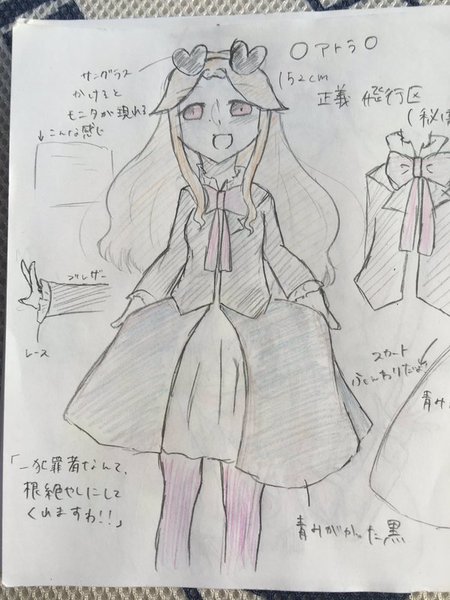 ○アトラ○
152cm
正義 飛行区
(秘
サングラス
かけると
モニタが現れる
↓こんな感じ
ブレザー
レース
スカート
ふんわりだよ
青み
青みがかった黒
「一犯罪者なんて、
根絶やしにして
くれますわ!!」